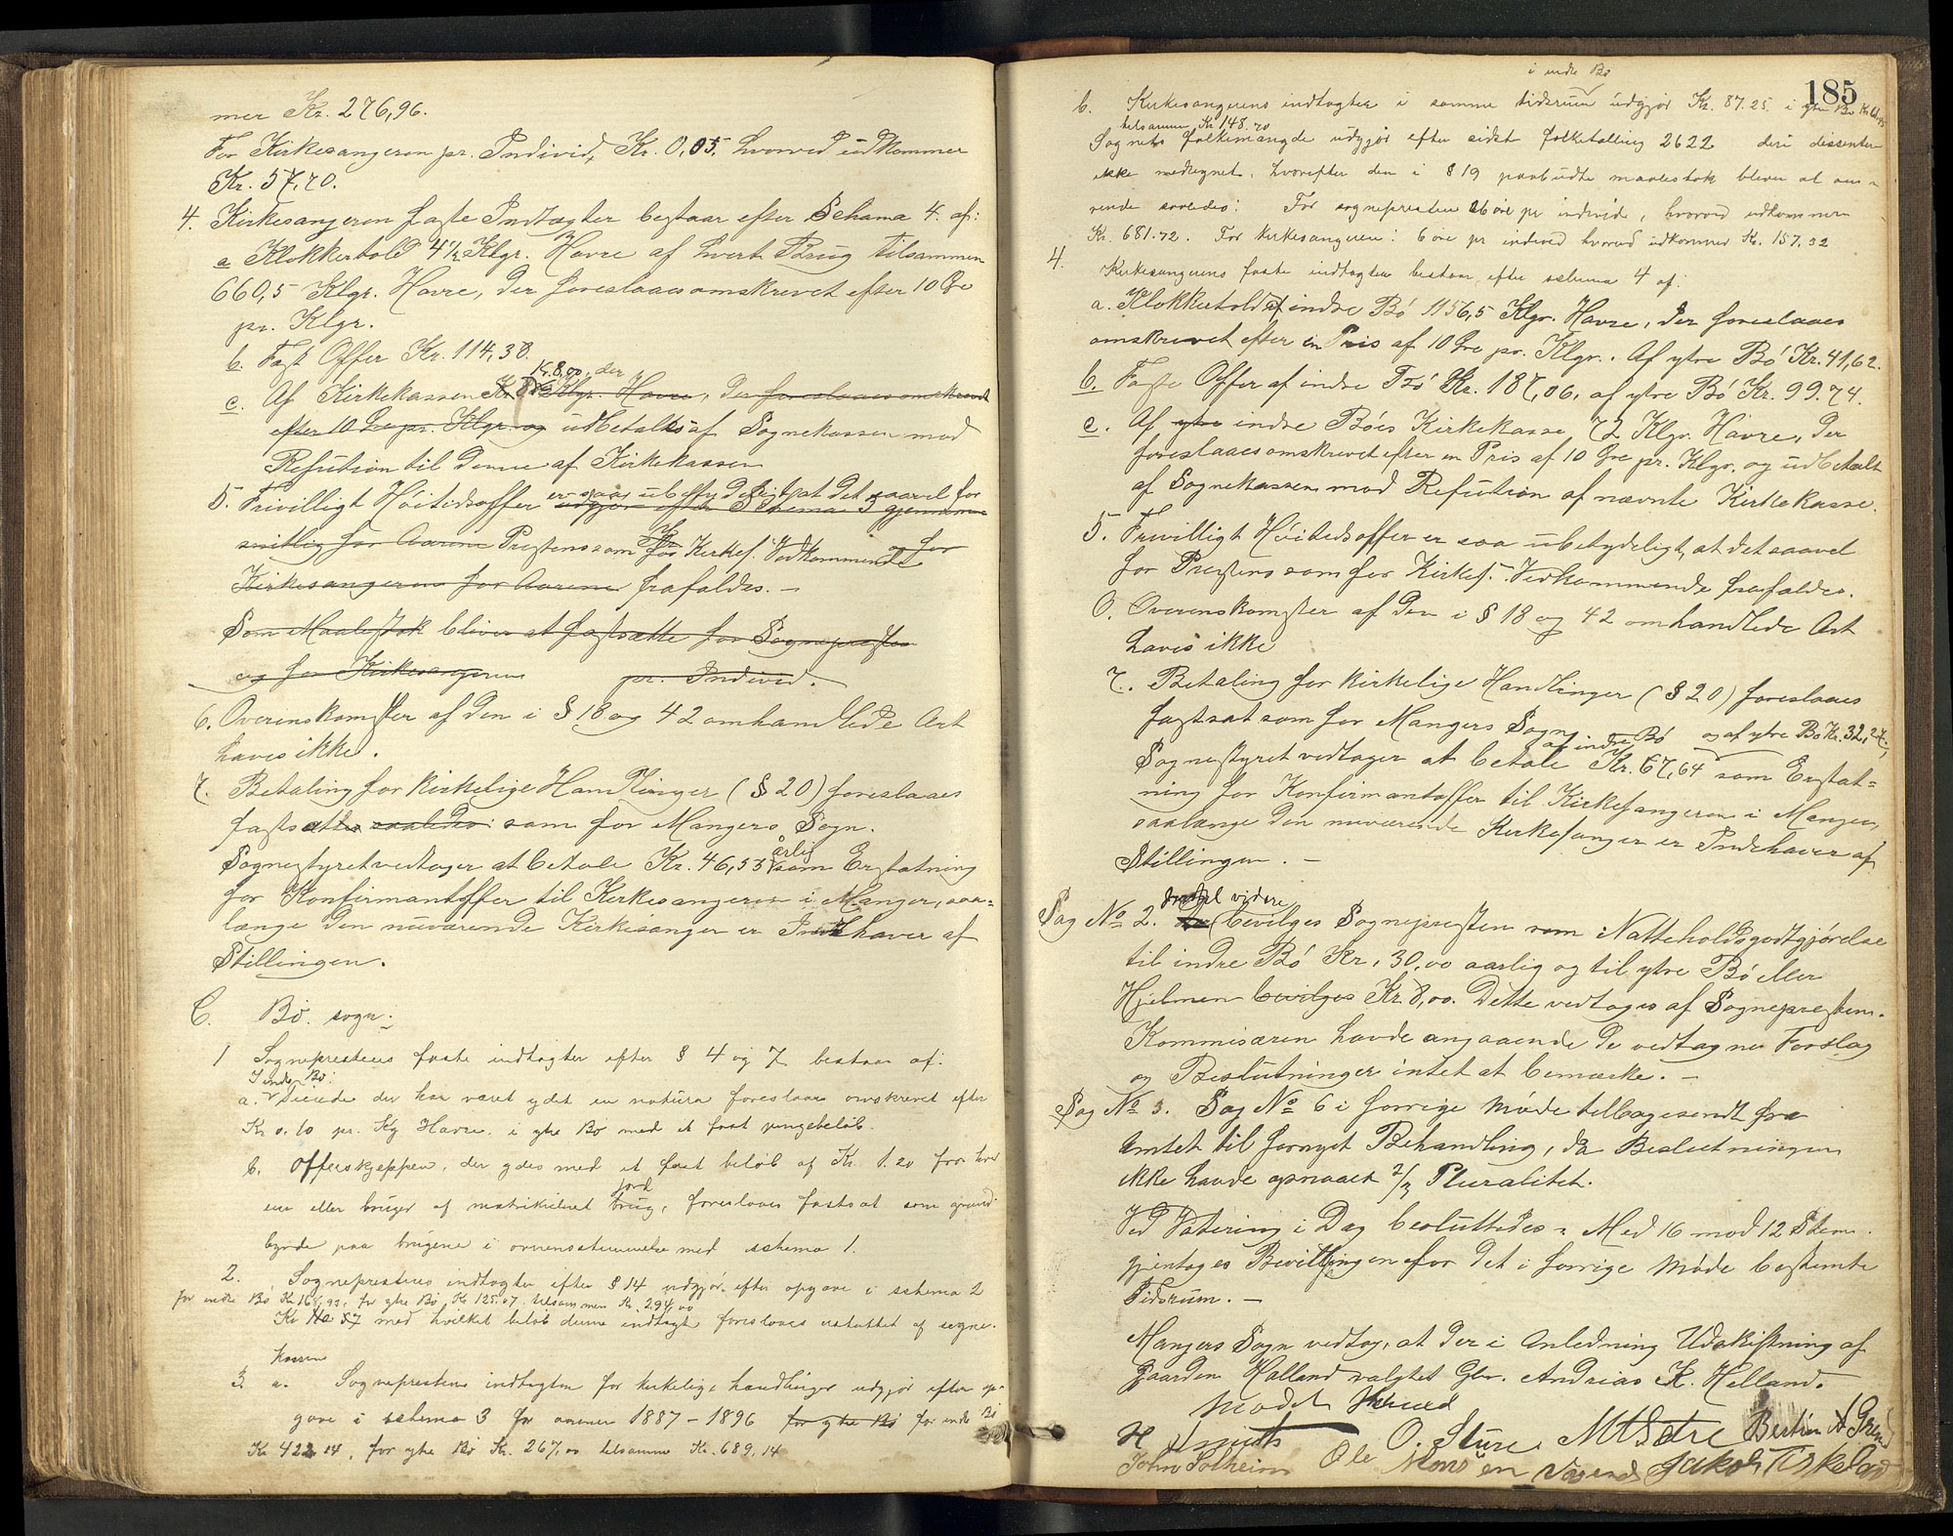 mer Kr. 276,96.
For Kirkesangeren pr. Individ, Kr. 0,05. hvorved udkommer
Kr. 57,70.
4. Kirkesangeren faste Indtægter bestaar efter Schema 4. af:
a Klokkertold 4½ Klgr. Havre af hvert Brug tilsammen
660,5 Klgr. Havre, der foreslaaes omskrevet efter 10 Øre
pr. Klgr.
b. Fast Offer Kr. 114,38.
Kr. 8,00, der
c. Af Kirkekassen Klgr. Havre, der foreslaaes omskrevet
efter 10 Øre pr. Klgr. og udbetales af Sognekassen mod
Refution til denne af Kirkekassen
er saa ubetydeligt, at det saavel for
5. Frivilligt Höitidsoffer udgjør efter Schema 5 gjennem-
snitlig for Aarene Prestens som for Kirkes. Vedkommende og for
Kirkesangeren for Aarene frafaldes. —
Som Maalestok bliver at fastsætte for Sognepresten
og for Kirkesangeren pr. Individ.
6. Overenskomster af den i § 18 og 42 omhandlede Art
haves ikke.
7. Betaling for kirkelige Handlinger (§ 20) foreslaaes
fastsættes saaledes: som for Mangers Sogn.
årlig
Sognestyret vedtager at betale Kr. 46,53 som Erstatning
for Konfirmantoffer til Kirkesangeren i Manger, saa=
længe den nuværende Kirkesanger er Indehaver af
Stillingen.
C. Bö. sogn:
1 Sogneprestens faste indtægter efter § 4 og 7 bestaar af:
I indre Bö:
a. Tiende der har været ydet in natura foreslaaes omskrevet efter
Kr 0.10 pr. Kg Havre. i ytre Bö med et fast pengebeløb.
b. Offerskjeppen, der ydes med et fast beløb af Kr. 1.20 for hver
jord
eier eller bruger af matrikuleret brug, foreslaaes fastsat som grund-
byrde paa brugene i overensstemmelse med schema 1.
2. Sogneprestens indtægter efter § 14 udgjør efter opgave i schema 2
for indre Bö Kr. 168,93, for ytre Bö Kr 125.07. tilsammen Kr. 294,00
Kr med hvilket beløb denne indtægt foreslaaes erstattet af sogne-
kassen
3. a. Sogneprestens indtægter for kirkelige handlinger udgjør efter op-
gave i schema 3 for aarene 1887-1896 for ytre Bö for indre Bö
Kr 422.14, for ytre Bö Kr. 267,00 tilsammen Kr. 689,14
185
i indre Bö
b. Kirkesangerens indtægter i samme tidsrum udgjør Kr. 87.25 i ytre Bö
tilsammen Kr 148.70
Sognets folkemængde udgjør efter sidste folketælling 2622 deri dissentere
ikke medregnet, hvorefter den i § 19 paabudte maalestok bliver at
saaledes: For sognepresten 26 øre pr individ, hvorved udkommer
Kr. 681.72. For kirkesangeren: 6 øre pr individ hvorved udkommer Kr. 157,32
4. Kirkesangerens faste indtægter bestaar efter schema 4 af:
a. Klokkertold af indre Bö 1156,5 Klgr. Havre, der foreslaaes
omskrevet efter en Pris af 10 Øre pr. Klgr. Af ytre Bö Kr. 41,62.
b. Faste Offer af indre Bö Kr. 187,06, af ytre Bö Kr. 99.74.
c. Af ytre indre Böes Kirkekasse 72 Klgr. Havre, der
foreslaaes omskrevet efter en Pris af 10 Øre pr. Klgr. og udbetalt
af Sognekassen mod Refution af nævnte Kirkekasse.
5. Frivilligt Höitidsoffer er saa ubetydeligt, at det saavel
for Prestens som for Kirkes. Vedkommende frafaldes.
6. Overenskomster af den i § 18 og 42 omhandlede Art
haves ikke
7. Betaling for kirkelige Handlinger (§ 20) foreslaaes
fastsat som for Mangers Sogn.
af indre Bö og af ytre Bö Kr. 32,27,
Sognestyret vedtager at betale Kr. 67,64 som Erstat=
ning for Konfirmantoffer til Kirkesangeren i Manger,
saalænge den nuværende Kirkesanger er Indehaver af
Stillingen. —
Indtil videre
Sag No 2. bevilges Sognepresten som Natteholdsgodtgjørelse
til indre Bö Kr. 30,00 aarlig og til ytre Bö eller
Hjelmen bevilges Kr. 8,00. Dette vedtages af Sognepresten.
Kommisæren havde angaaende de vedtagne Forslag
og Beslutninger intet at bemærke. —
Sag No 3. Sag No 6 i forrige Møde tilbagesendt fra
Amtet til fornyet Behandling, da Beslutningen
ikke havde opnaaet 2/3 Pluralitet.
Ved Votering i Dag besluttedes: Med 16 mod 12 Stem.
gjentages Bevillingen for det i forrige Møde bestemte
Tidsrum. —
Mangers Sogn vedtog, at der i Anledning Udskiftning af
Gaarden Halland valgtes Gbr. Andreas K. Helland.
Mødet Hævet
O. Sture. M H Sætre Bertin A Grend
John Solheim Ole Monsen Jakob Tiskelad